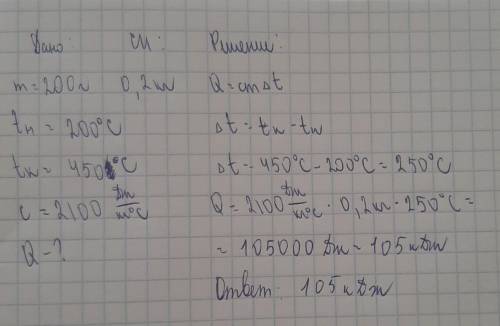 Дано: СИ: Решение:
m = 200г 0,2кг Q = cmΔt
tн = 200°C Δt = tк - tн
tк = 450°C Δt = 450°C - 200°C = 250°C
c = 2100 Дж/кг°C Q = 2100 Дж/кг°C · 0,2кг · 250°C =
Q - ? = 105000 Дж = 105 кДж
Ответ: 105 кДж